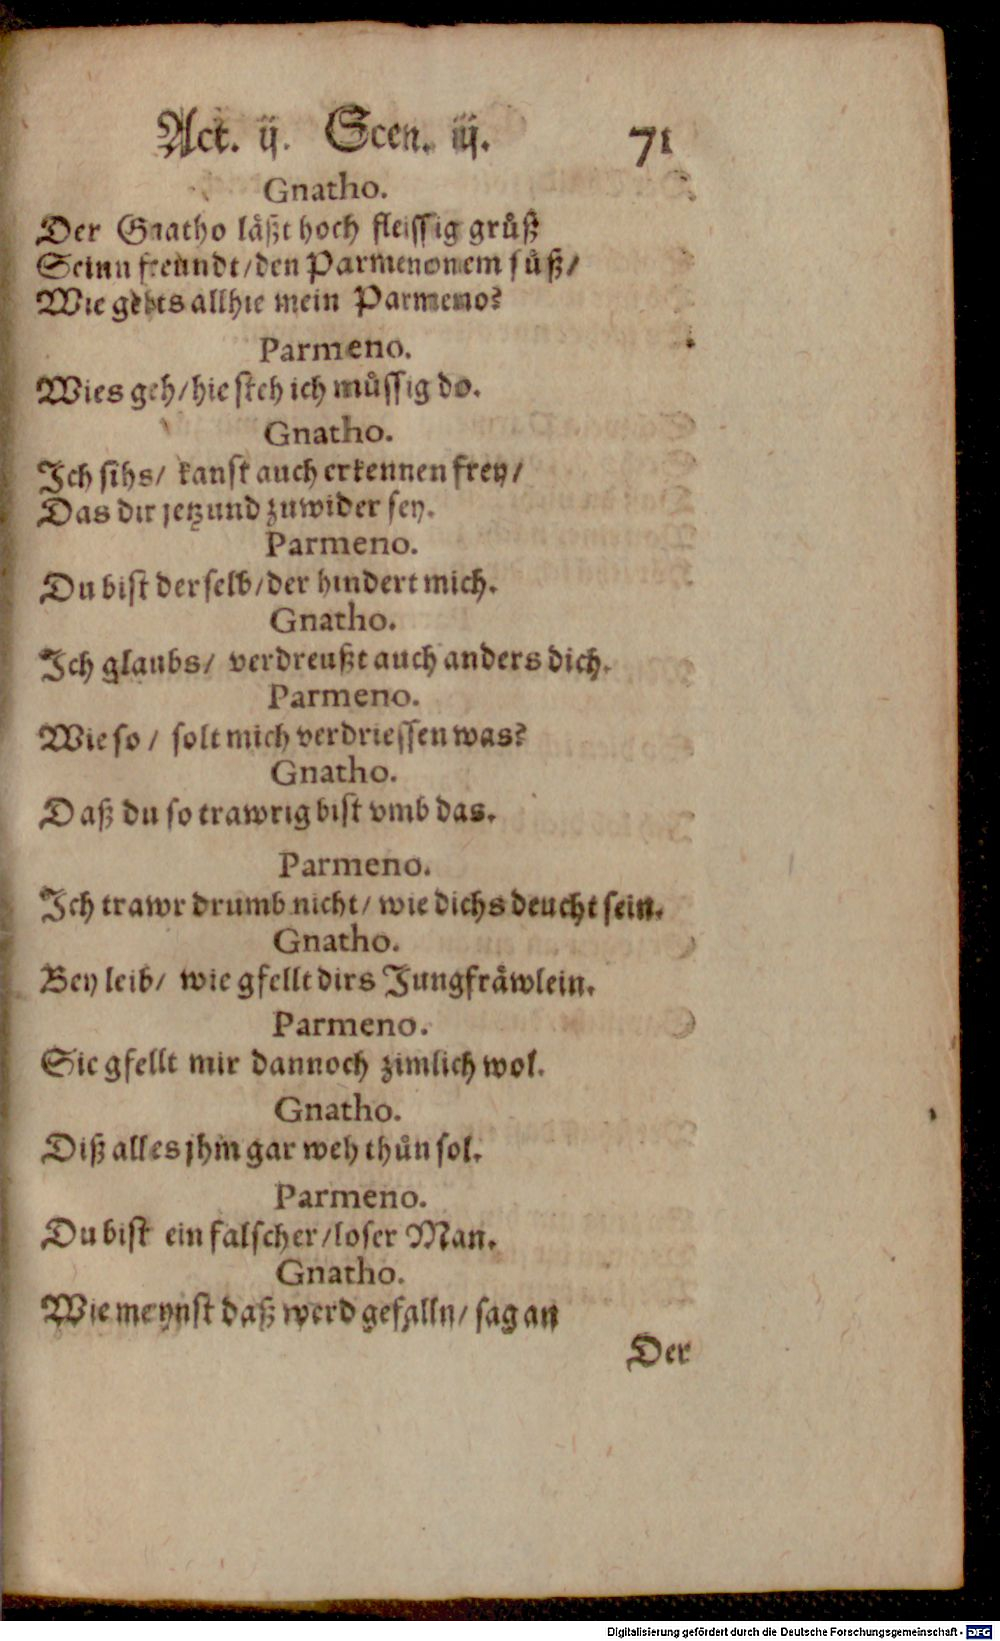 Act. ij. Scen. iij. 71
Gnatho.
Der Gnatho läßt hoch fleissig grüß
Seinn freundt/den Parmenonem süß/
Wie gehts allhie mein Parmeno?
Parmeno.
Wies geh/hie steh ich müssig do.
Gnatho.
Ich sihs/ kanst auch erkennen frey/
Das dir jetzund zuwider sey.
Parmeno.
Du bist derselb/der hindert mich.
Gnatho.
Ich glaubs/ verdreußt auch anders dich.
Parmeno.
Wie so/ solt mich verdriessen was?
Gnatho.
Daß du so trawrig bist vmb das.
Parmeno.
Ich trawr drumb nicht/ wie dichs deucht sein.
Gnatho.
Bey leib/ wie gfellt dirs Jungfräwlein.
Parmeno.
Sie gfellt mir dannoch zimlich wol.
Gnatho.
Diß alles jhm gar weh thůn sol.
Parmeno.
Du bist ein falscher/loser Man.
Gnatho.
Wie meynst daß werd gefalln/ sag an
Der
Digitalisierung gefördert durch die Deutsche Forschungsgemeinschaft - DFG